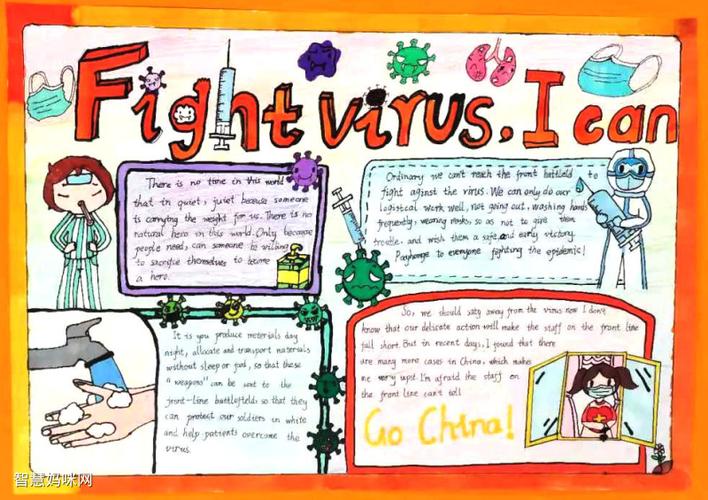 Fight virus, I can
There is no time in this world
that in quiet, juiet because someone
is carrying the weight for us. There is no
natural hero in this world. Only because
people need, can someone be willing
to sacrifice themselves to become
a hero.
Ordinary we can't reach the front battleld to
fight against the virus. We can only do our
logistical work well, not going out, washing hands
frequently, wearing masks, so as not to give them
trouble, and wish them a safe and early victory.
Payhomge to everyone fighting the epidemic!
It is you produce materials day
night, allocate and transport materials
without sleep or food, so that these
a weapons" can be sent to the
front-line battlefield, so that they
can protect our soldiers in white
and help patients overcome the
virus.
So, we should saty away from the virus now I don't
know that our delicate action will make the staff on the front line
fall short. But in recent days, I found that there
are many more cases in China, which makes
me very upst. I'm afraid the staff on
the front line can't toll
Go China!
智慧妈咪网